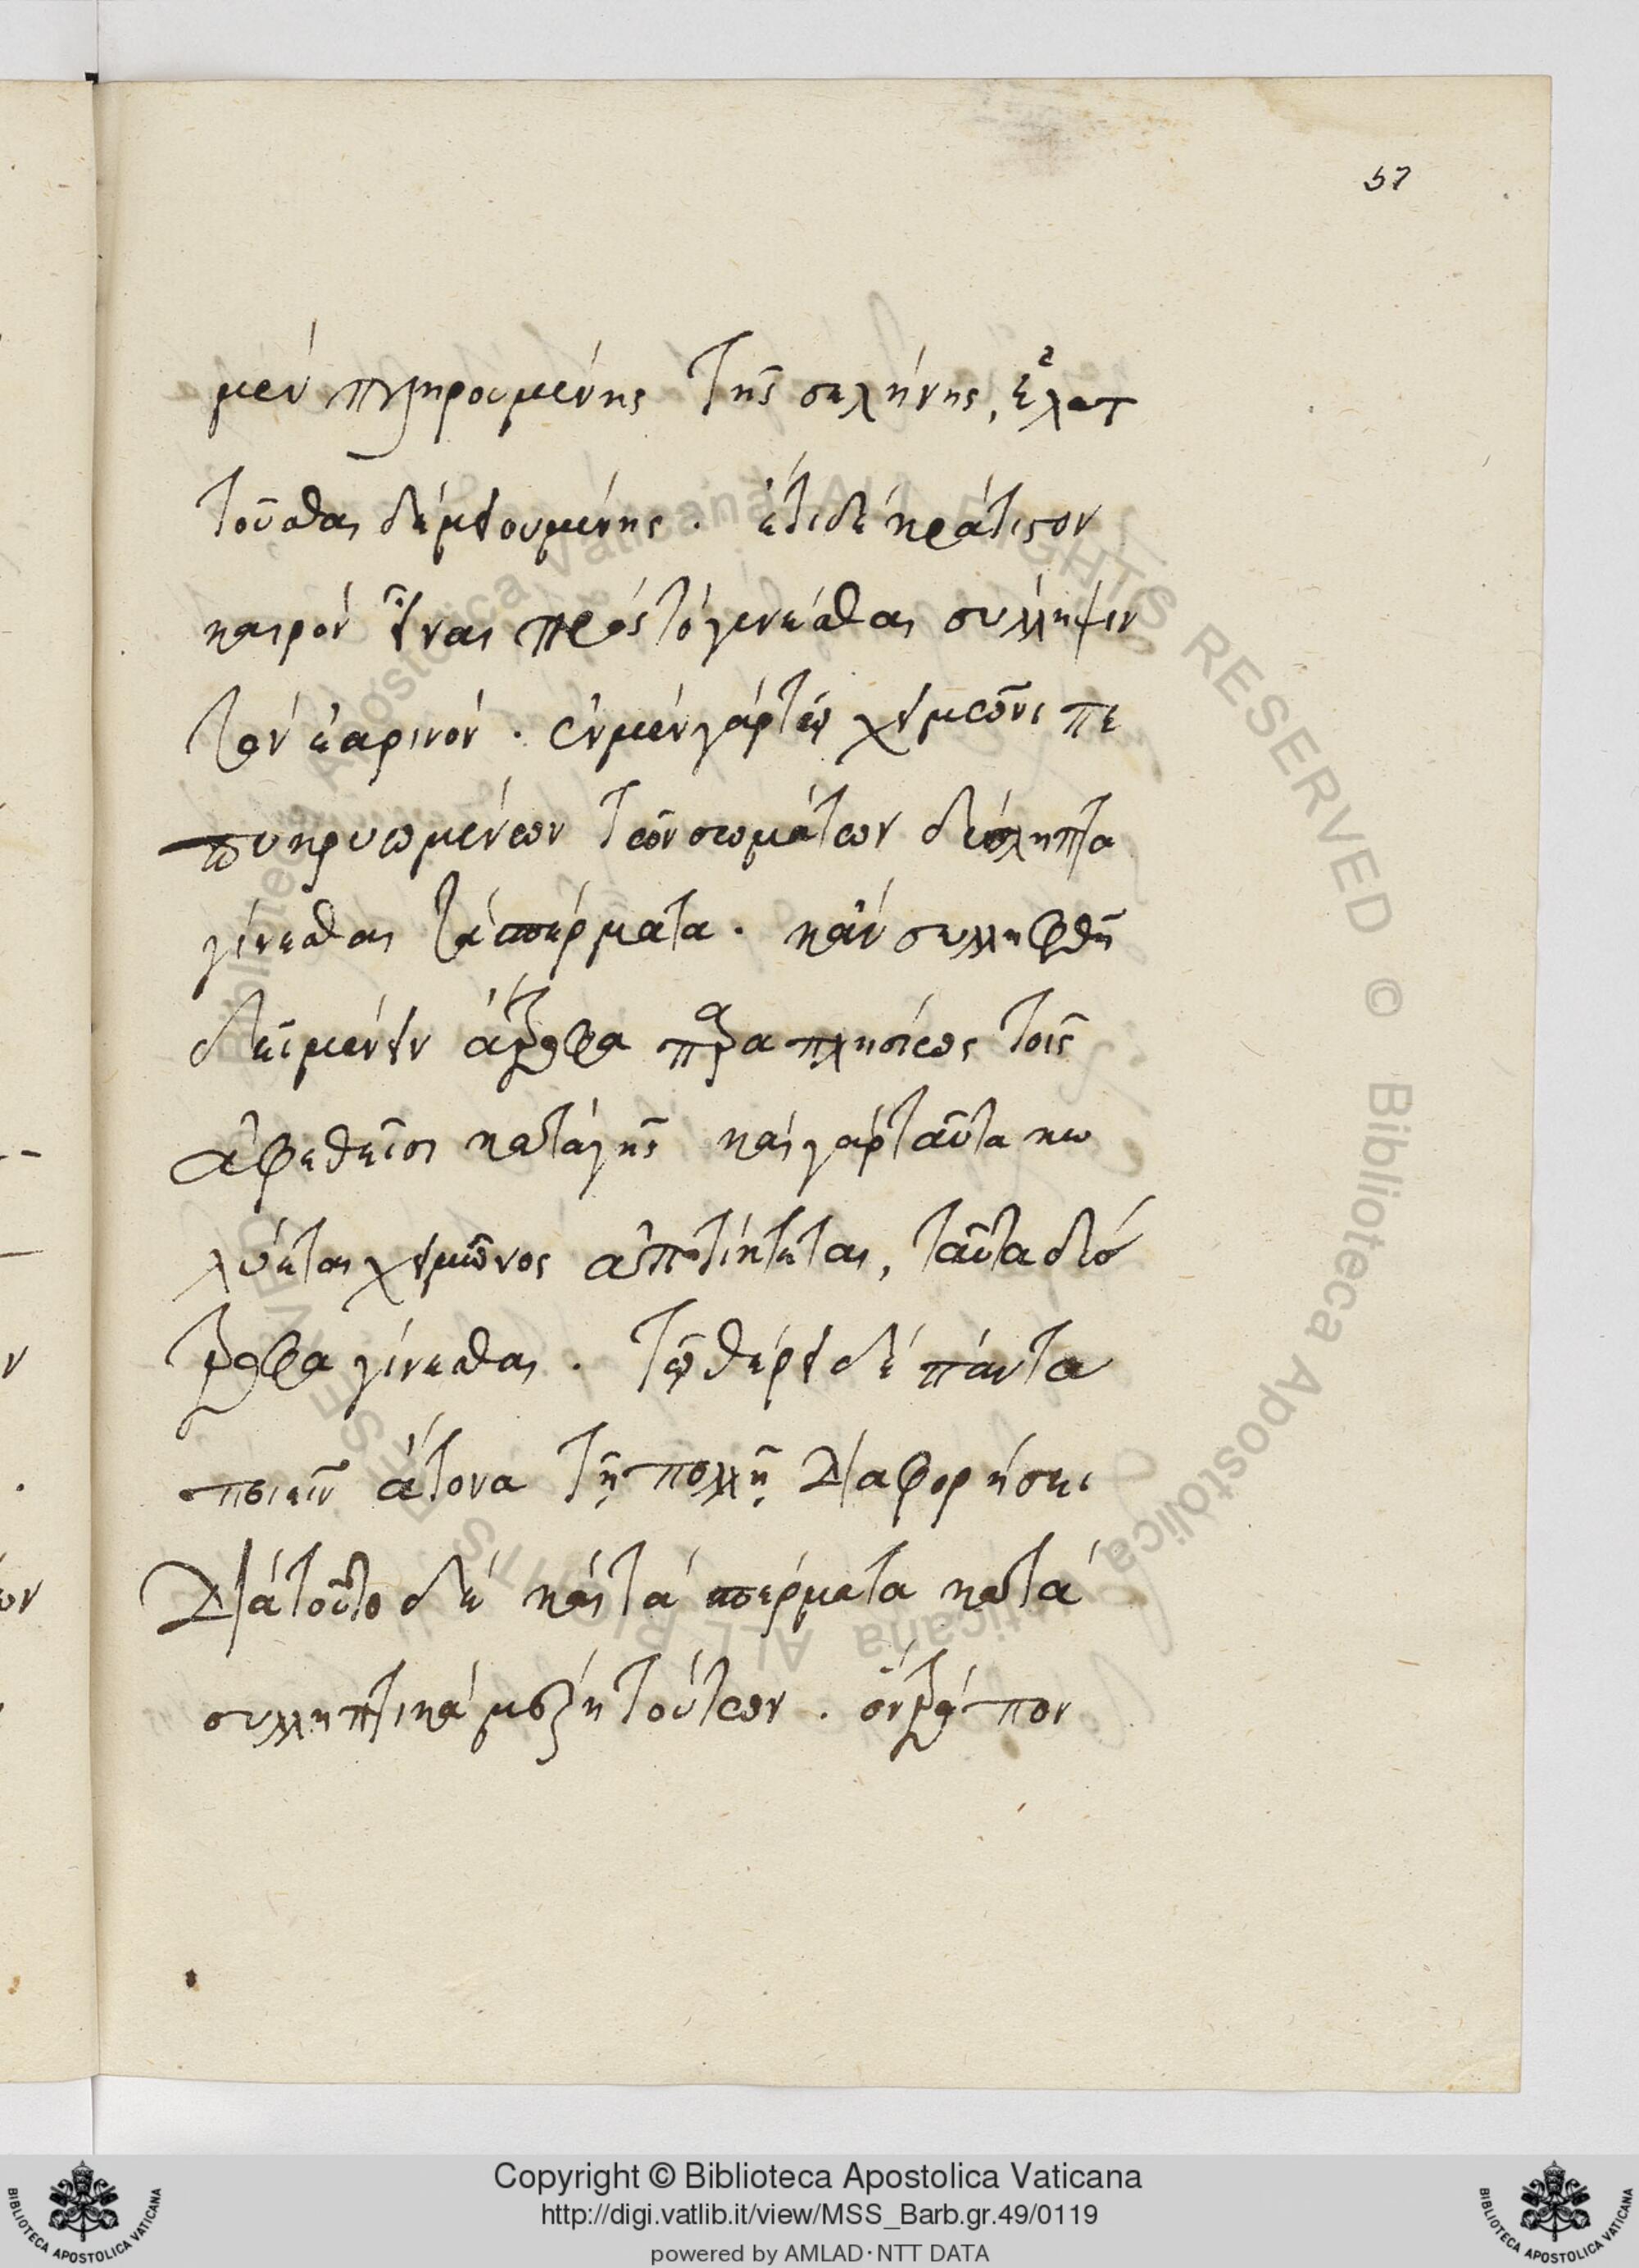 57
μὲν πληρουμένης τῆς σελήνης, ἐλατ
τοῦσθαι δὲ μειουμένης. ἔτι δὲ κράτιστον
καιρὸν εἶναι πρὸς τὸ γενέσθαι σύλληψιν
τὸν ἐαρινόν. ἐν μὲν γὰρ τῷ χειμῶνι πε
πυκνωμένων τῶν σωμάτων
γίνεσθαι τὰ σπέρματα. κἂν συλληφθῇ
δεῖ μένειν ἄτροφα παραπλησίως τοῖς
ἀφεθεῖσι κατὰ γῆς καὶ γὰρ ταῦτα κω
λύεται χειμῶνος ταῦτα
τροφα γίνεσθαι. τῷ θέρει δὲ πάντα
ποιεῖν ἄτονα τῇ πολλῇ διαφορήσει
διὰ τοῦτο δὲ καὶ τὰ σπέρματα κατὰ
συλληπτικὰ τούτων. ὃν τρόπον
Copyright © Biblioteca Apostolica Vaticana
http://digi.vatlib.it/view/MSS_Barb.gr.49/0119
powered by AMLAD·NTT DATA
BIBLIOTECA APOSTOLICA VATICANA
BIBLIOTECA APOSTOLICA VATICANA
Biblioteca Apostolica Vaticana ALL RIGHTS RESERVED © Biblioteca Apostolica Vaticana ALL RIGHTS RESERVED